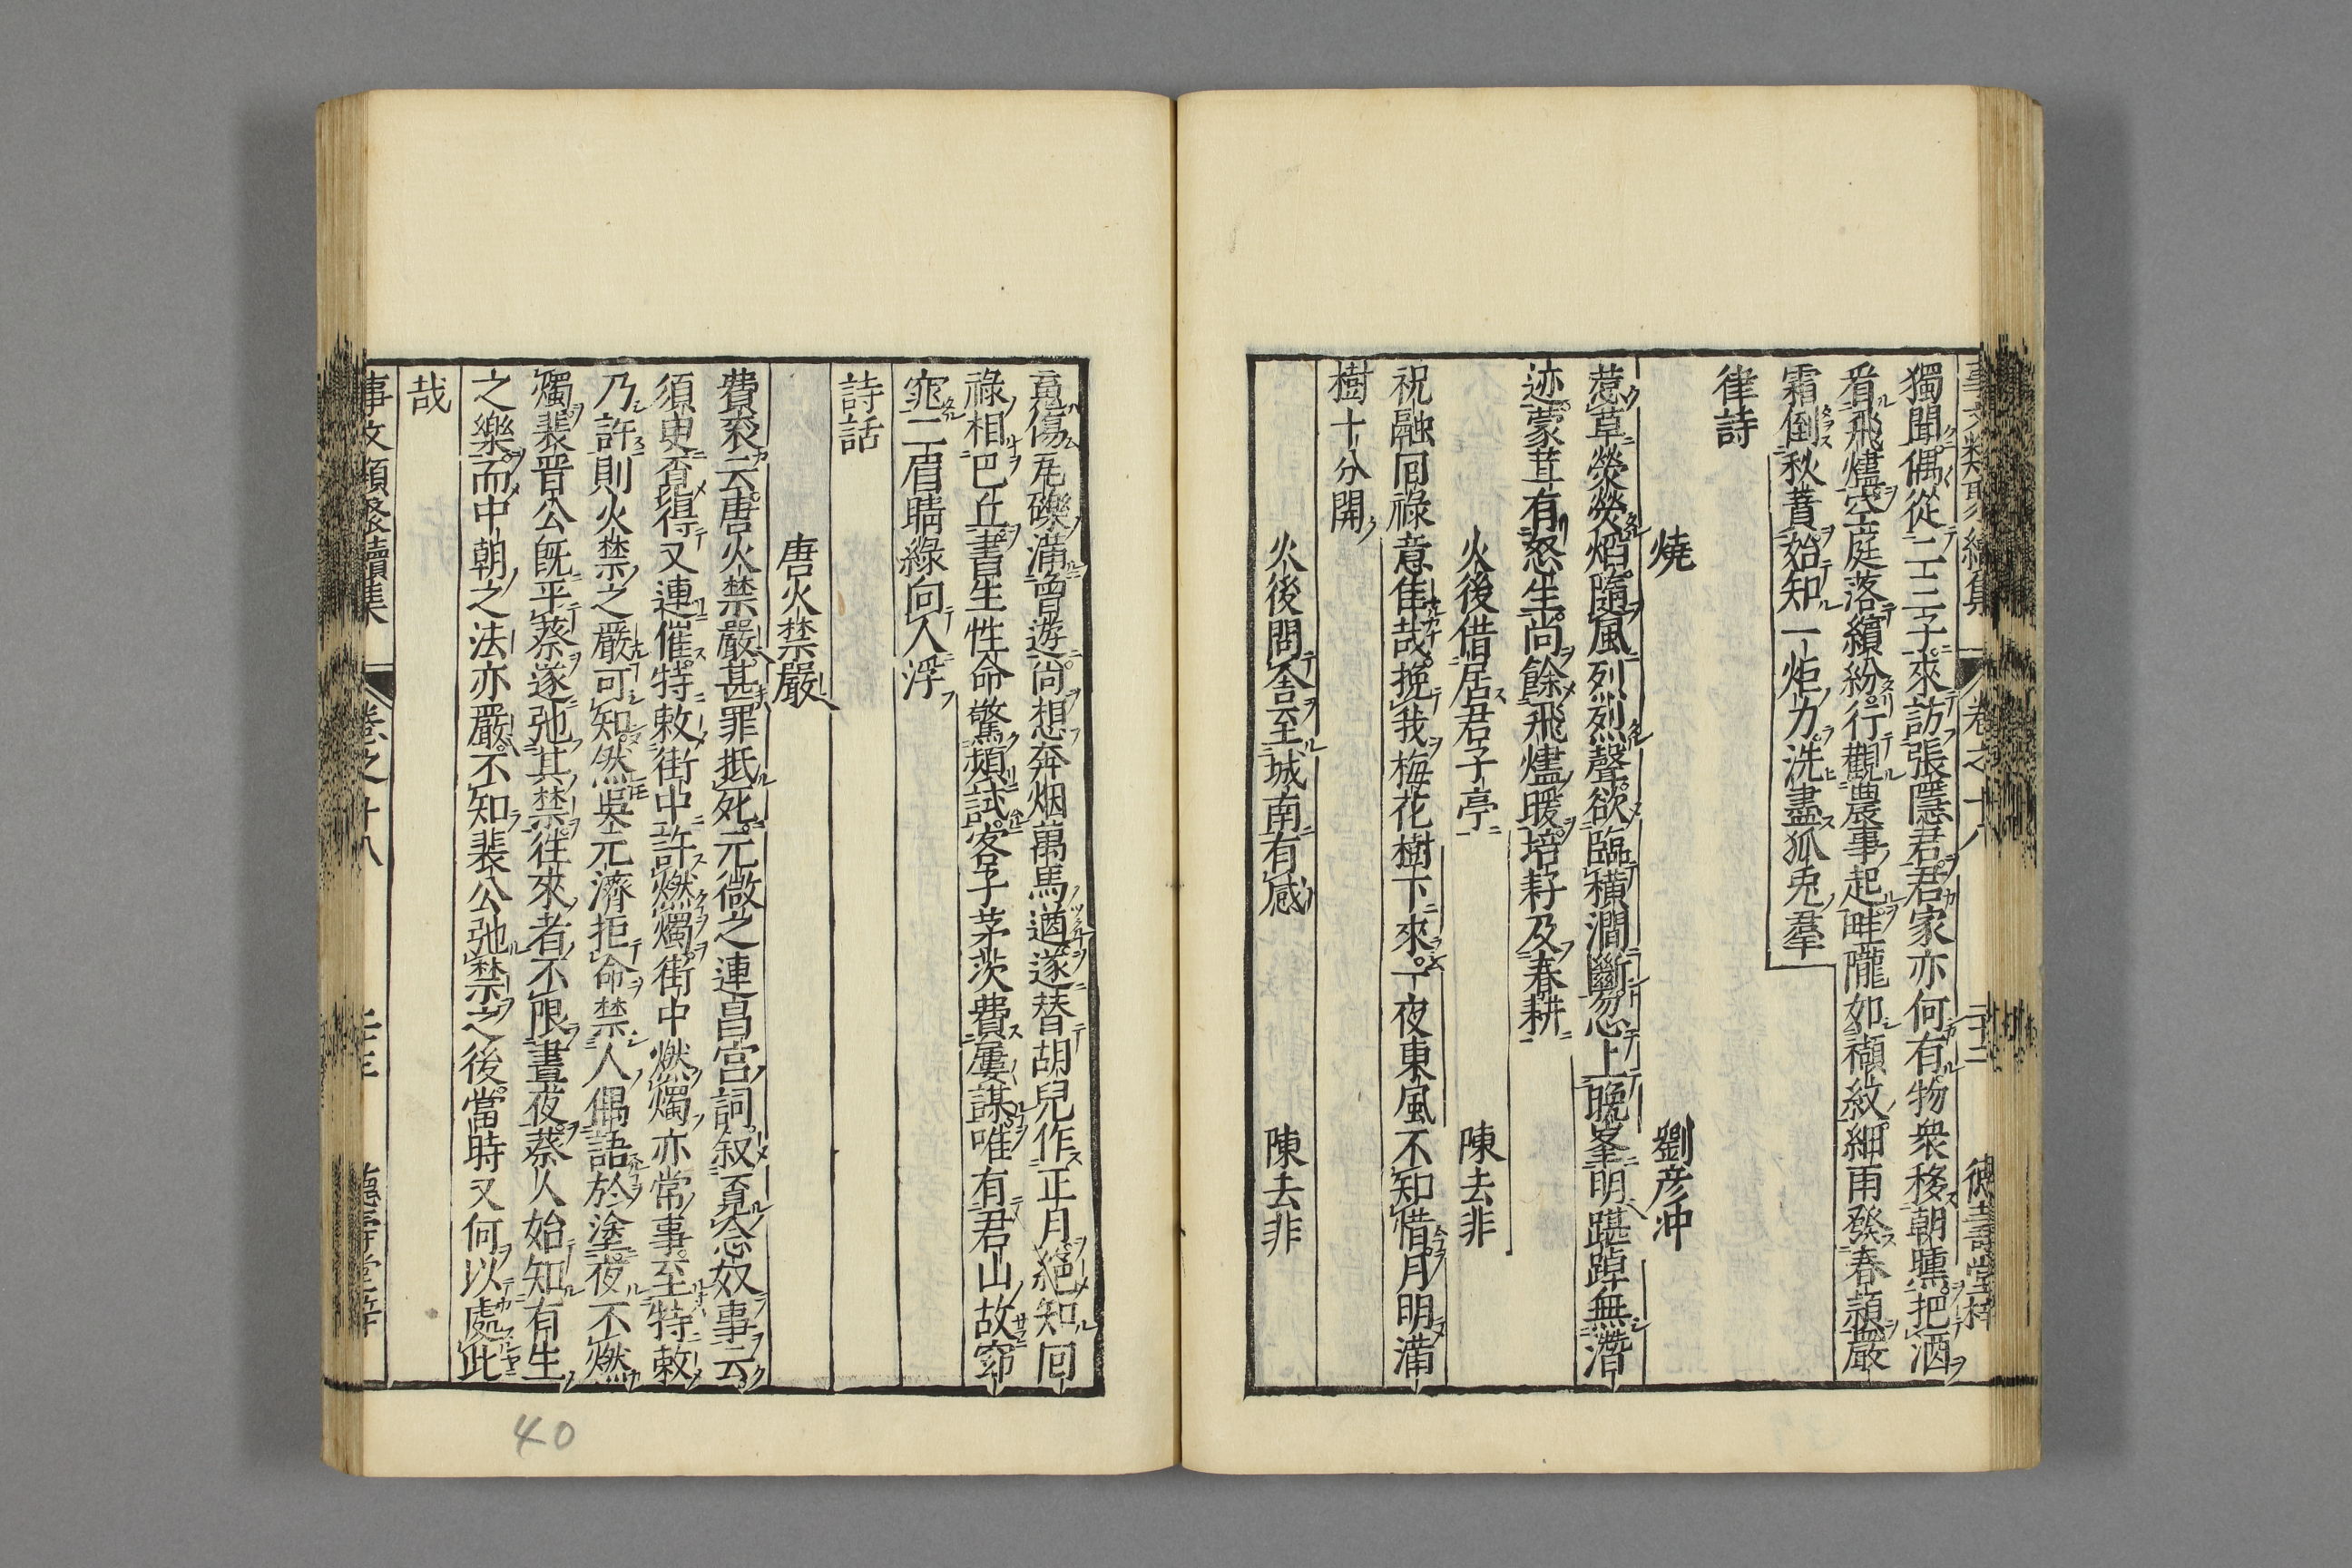 事文類聚續集 卷之十八 二十二 德壽堂梓
獨聞偶從二三子來訪張隱君君家亦何有物衆移朝曛把酒
看飛燼空庭落繽紛行觀農事起畦隴如纈紋細雨發春穎嚴
霜倒秋蕡始知一炬力洗盡狐兎羣
律詩
燒 劉彦冲
惹草熒熒焰隨風烈烈聲欲臨橫澗斷忽上晚峯明踸踔無潛
迹蒙茸有怒生尚餘飛燼暖培耔及春耕
火後借居君子亭 陳去非
祝融囘祿意佳哉挽我梅花樹下來一夜東風不知惜月明滿
樹十分開
火後問舍至城南有感 陳去非
魂傷瓦礫滿曾遊尚想奔烟萬馬遒遂替胡兒作正月絕知囘
祿相巴丘書生性命驚頻試客子茅茨費屢謀唯有君山故窈
窕二眉晴綠向人浮
詩話
唐火禁嚴
費衮云唐火禁嚴甚罪抵死元微之連昌宮詞叙覓念奴事云
須臾覓得又連催特敕街中許燃燭街中燃燭亦常事至特敕
乃許則火禁之嚴可知然吳元濟拒命禁人偶語於塗夜不燃
燭裴晉公旣平蔡遂弛其禁徃來者不限晝夜蔡人始知有生
之樂而中朝之法亦嚴不知裴公弛禁之後當時又何以處此
哉
事文類聚續集 卷之十八
40